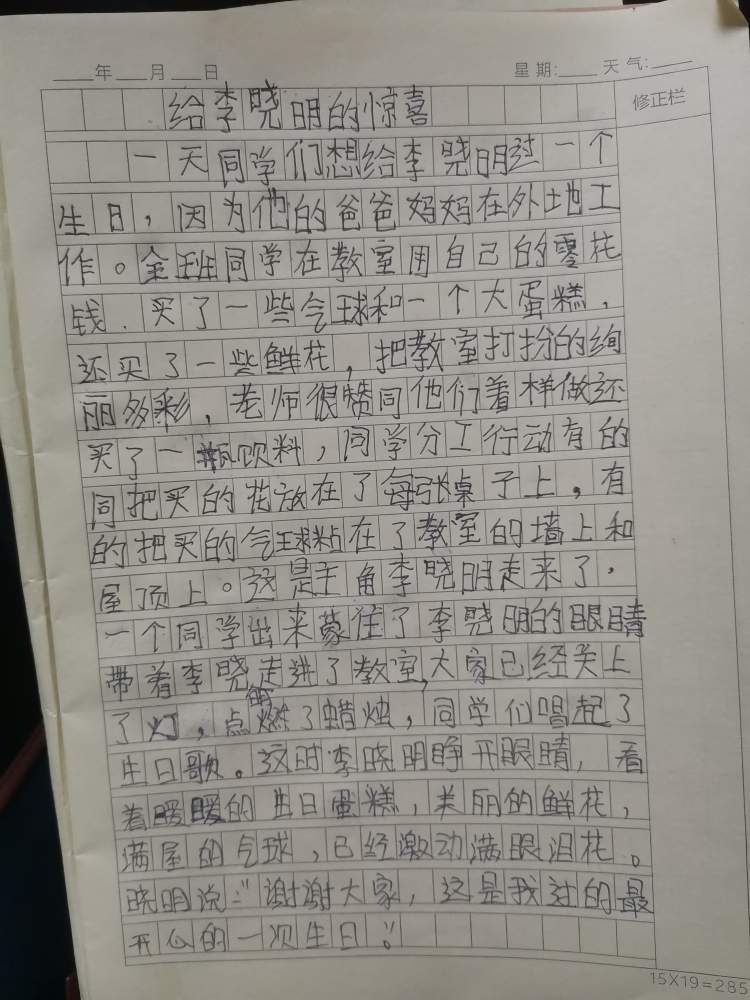 ____年 ___月 ___日 星期:____ 天气:____
修正栏
给李晓明的惊喜
一天同学们想给李晓明过一个
生日，因为他的爸爸妈妈在外地工
作。全班同学在教室用自己的零花
钱．买了一些气球和一个大蛋糕，
还买了一些鲜花，把教室打扮的绚
丽多彩，老师很赞同他们着样做还
买了一瓶饮料，同学分工行动有的
同把买的花放在了每张桌子上，有
的把买的气球粘在了教室的墙上和
屋顶上。这是主角李晓明走来了．
一个同学出来蒙住了李晓明的眼睛
带着李晓明走进了教室，大家已经关上
了灯，点燃了蜡烛，同学们唱起了
生日歌。这时李晓明睁开眼睛，看
着暖暖的生日蛋糕，美丽的鲜花，
满屋的气球，已经激动满眼泪花。
晓明说："谢谢大家，这是我过的最
开心的一次生日！"
15X19=285